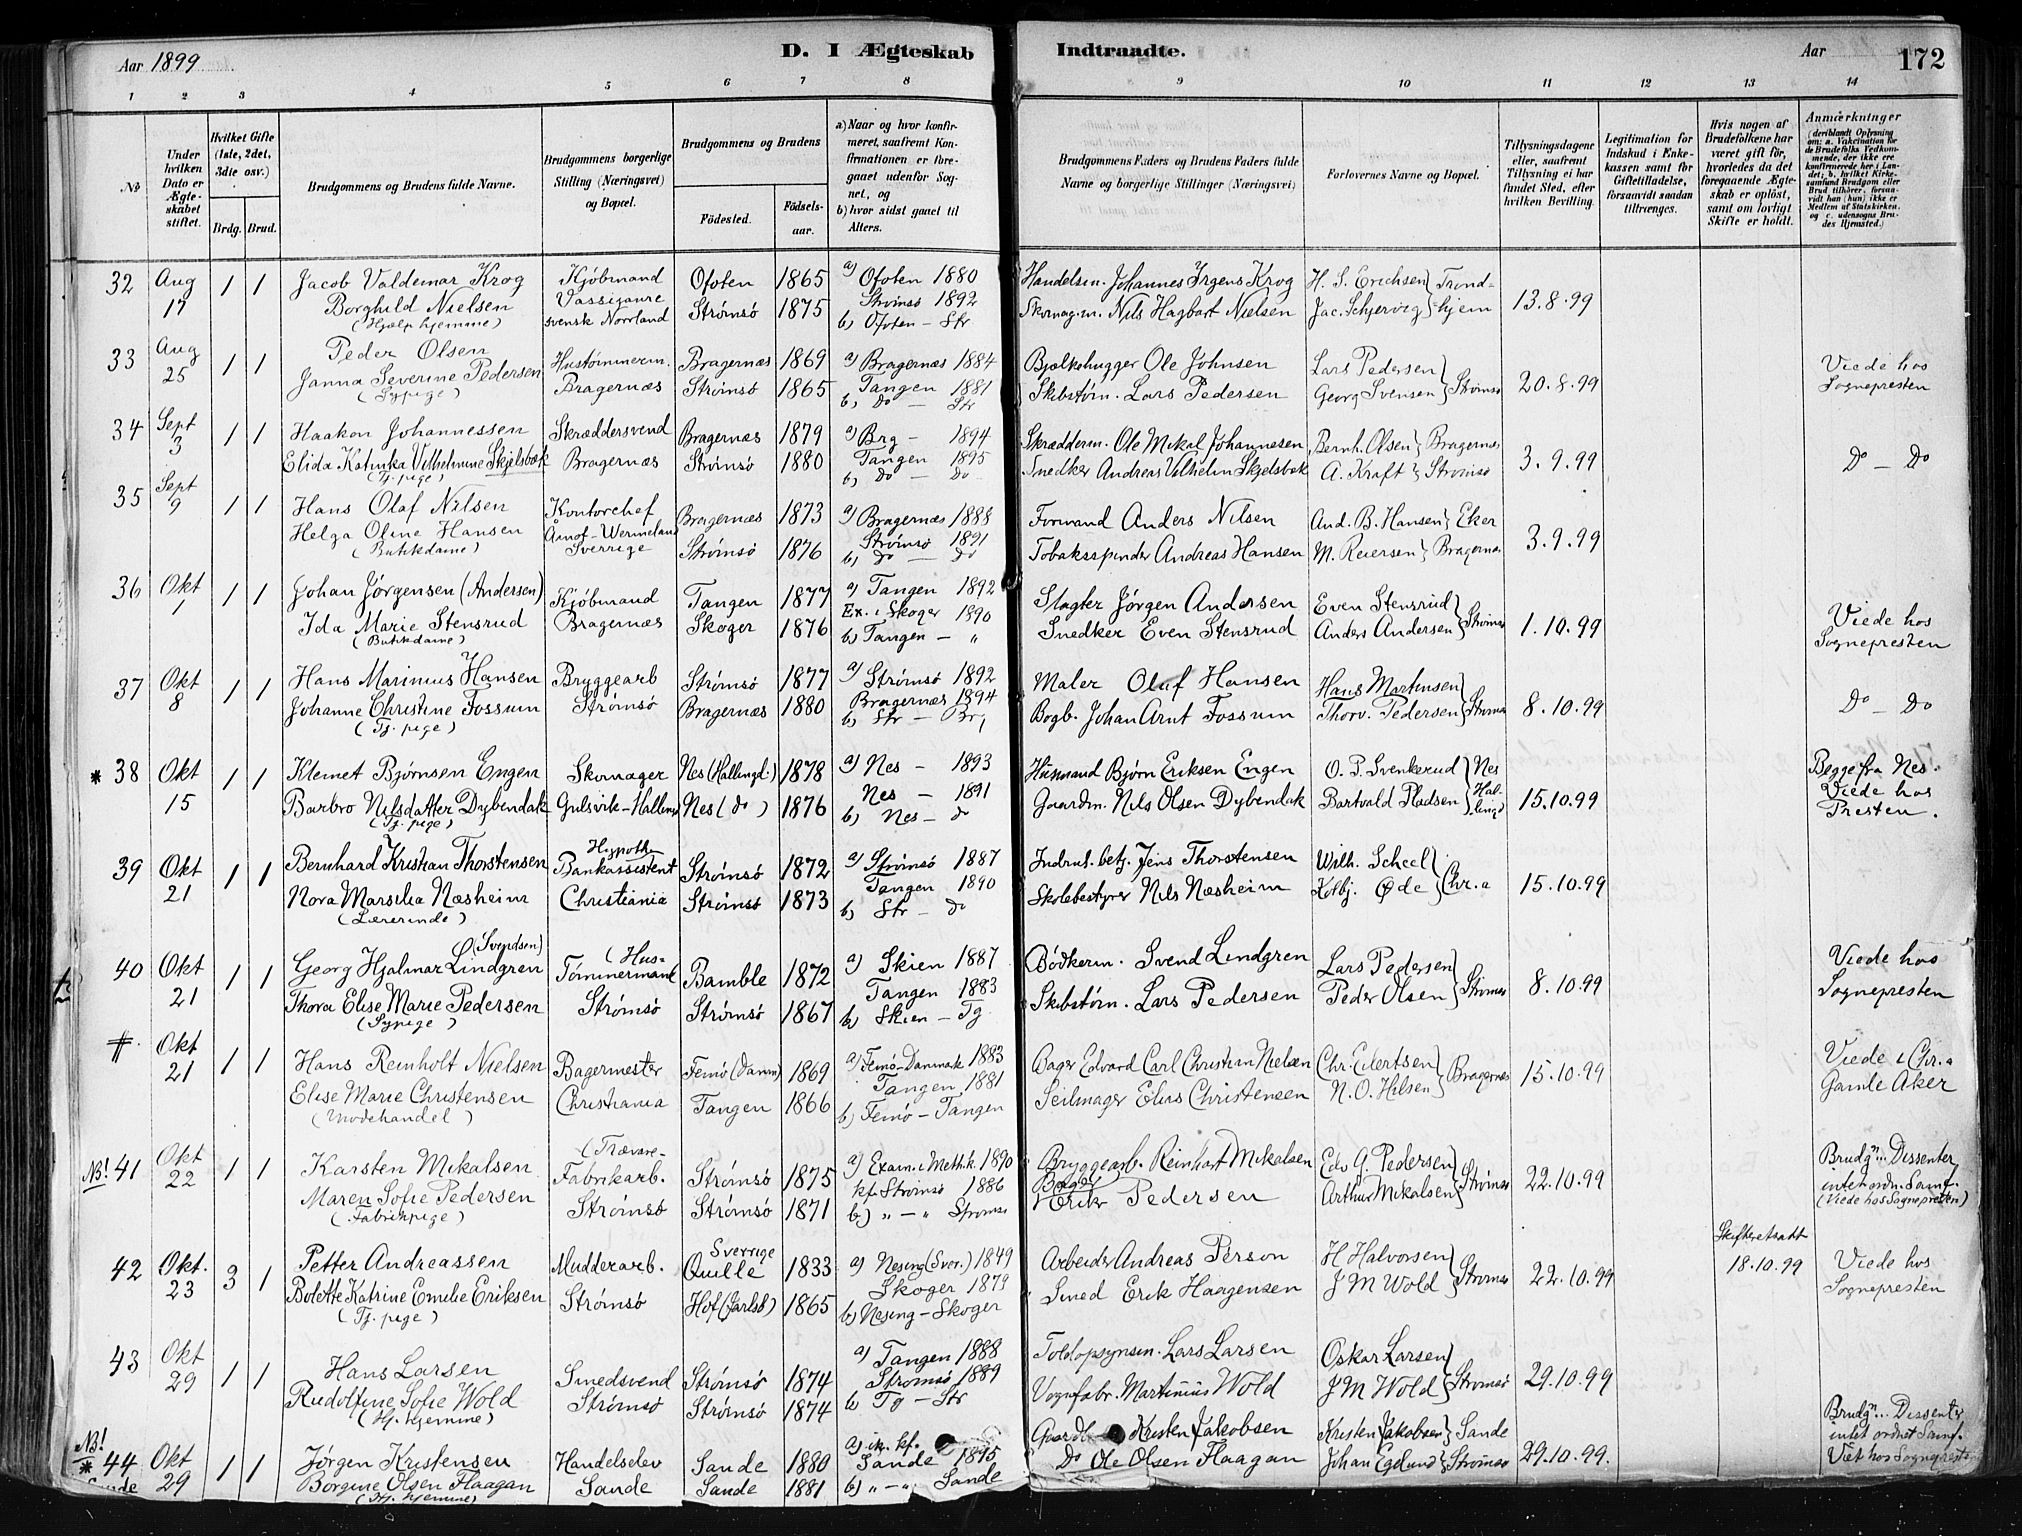 Aar 1899
D. I Ægteskab Indtraadte.
Aar
172
1 2 3 4 5 6 7 8 9 10 11 12 13 14
No
Under hvilken Dato er Ægteskabet stiftet.
Hvilket Gifte (1ste, 2det, 3die osv.)
Brdg. Brud.
Brudgommens og Brudens fulde Navne.
Brudgommens borgerlige Stilling (Næringsvei) og Bopæl.
Brudgommens og Brudens
Födested.
Födselsaar.
a) Naar og hvor konfirmeret, saafremt Konfirmationen er foregaaet udenfor Sognet, og
b) hvor sidst gaaet til Alters.
Brudgommens Faders og Brudens Faders fulde Navne og borgerlige Stillinger (Næringsvei)
Forlovernes Navne og Bopæl.
Tillysningsdagene eller, saafremt Tillysning ei har fundet Sted, efter hvilken Bevilling.
Legitimation for Indskud i Enkekassen samt for Giftetilladelse, forsaavidt saadan tiltrænges.
Hvis nogen af Brudefolkene har været gift för, hvorledes da det foregaaende Ægteskab er oplöst, samt om lovligt Skifte er holdt.
Anmærkninger (deriblandt Oplysning om: a. Vakcination for de Brudefolks Vedkommende, der ikke ere konfirmerede her i Landet; b. hvilket Kirkesamfund Brudgom eller Brud tilhörer, forsaavidt han (hun) ikke er Medlem af Statskirken, og c. udensogns Brudes Hjemsted.)
32 Aug 17 1 1 Jacob Valdemar Krog Kjöbmand Ofoten 1865 a) Ofoten 1880 Handelsm. Johannes Irgens Krog H. S. Erichsen } Trond-
Borghild Nielsen Vassijaure Strømsö 1875 Strømsö 1892 Skomag.m. Nils Hagbart Nielsen Jac. Schjervig } hjem 13.8.99
(Hjælp hjemme) svensk Norrland b) Ofoten - Str
33 Aug 25 1 1 Peder Olsen Hustømmerm. Bragernæs 1869 a) Bragernæs 1884 Bjælkehugger Ole Johnsen Lars Pedersen } Viede hos
Janna Severine Pedersen Bragernæs Strømsö 1865 Tangen 1881 Skibstøm. Lars Pedersen Georg Svensen } Strømsö 20.8.99 Sognepresten
(Sypige) b) Do - Str
34 Sept 3 1 1 Haakon Johannessen Skræddersvend Bragernæs 1879 a) Brg - 1894 Skrædderm. Ole Mikal Johannesen Bernh. Olsen } Bragernæs
Elida Katinka Vilhelmine Skjelsbæk Bragernæs Strømsö 1880 Tangen 1895 Snedker Andreas Vilhelm Skjelsbæk A. Kraft } Strømsö 3.9.99 Do - Do
(Tj. pige) b) Do - Do
35 Sept 9 1 1 Hans Olaf Nilsen Kontorchef Bragernæs 1873 a) Bragernæs 1888 Formand Anders Nilsen And. B. Hansen } Eker
Helga Oline Hansen Åmot-Wermeland Strømsö 1876 Strømsö 1891 Tobaksspinder Andreas Hansen M. Reiersen } Bragernæs 3.9.99
(Butikdame) Sverrige b) do - do
36 Okt 1 1 1 Johan Jørgensen (Andersen) Kjöbmand Tangen 1877 a) Tangen 1892 Slagter Jørgen Andersen Even Stensrud } Viede hos
Ida Marie Stensrud Bragernæs Skoger 1876 Ex. i Skoger 1890 Snedker Even Stensrud Anders Andersen } Strømsö 1.10.99 Sognepresten
(Butikdame) b) Tangen - "
37 Okt 8 1 1 Hans Marinius Hansen Bryggearb Strømsö 1877 a) Strømsö 1892 Maler Oluf Hansen Hans Martinsen }
Johanne Christine Fossum Strømsö Bragernæs 1880 Bragernæs 1894 Bogb. Johan Arnt Fossum Thorv. Pedersen } Strømsö 8.10.99 Do - Do
(Tj. pige) b) Str - Brg
* 38 Okt 15 1 1 Klemet Bjørnsen Engen Skomager Nes (Hallingd:) 1878 a) Nes - 1893 Husmand Bjørn Eriksen Engen O. P. Svenkerud } Nes Begge fra Nes.
Barbro Nilsdatter Dybendak Gulsvik-Halling Nes (do) 1876 Nes - 1891 Gaardm. Nils Olsen Dybendak Bartvald Pladsen } Halling 15.10.99 Viede hos
(Tj. pige) b) Nes - do Presten.
39 Okt 21 1 1 Bernhard Kristian Thorstensen Hypothek Bankassistent Strømsö 1872 a) Strømsö 1887 Indrul. betj. Jens Thorstensen Wilh. Scheel }
Nora Marsilia Næsheim Christiania Strømsö 1873 Tangen 1890 Skolebestyrer Nils Næsheim Kolbj. Øde } Chr.a 15.10.99
(Lærerinde) b) Str - do
40 Okt 21 1 1 Georg Hjalmar Lindgren (Svendsen) (Hus= Tømmermand Bamble 1872 a) Skien 1887 Bødkerm. Svend Lindgren Lars Pedersen } Viede hos
Thora Elise Marie Pedersen Strømsö Strømsö 1867 Tangen 1883 Skibstøm. Lars Pedersen Peder Olsen } Strømsö 8.10.99 Sognepresten
(Sypige) b) Skien - Tg
# Okt 21 1 1 Hans Reinholt Nielsen Bagermester Femö (Danm) 1869 a) Femö-Danmark 1883 Bager Edvard Carl Christian Nielsen Chr. Eilertsen } Viede i Chr.a
Elise Marie Christensen Christiania Tangen 1866 Tangen 1881 Seilmager Elias Christensen N. O. Hilsen } Bragernæs 15.10.99 Gamle Aker
(Modehandel) b) Femö - Tangen
NB! 41 Okt 22 1 1 Karsten Mikalsen (Trævare- Fabrikarb. Strømsö 1875 a) Exam. i Meth.k. 1890 Bryggearb. Reinhart Mikalsen Eds G. Pedersen } Brudgn. Dissenter
Maren Sofie Pedersen Strømsö Strømsö 1871 kf. Strømsö 1886 Bager Erik Pedersen Arthur Mikalsen } Strømsö 22.10.99 intet ordn. Samf.
(Fabrikpige) b) " - " Strømsö (Viede hos Sognepresten)
42 Okt. 23 3 1 Petter Andreassen Mudderarb. Sverrige Quille 1833 a) Nesing (Sver.) 1849 Arbeider Andreas Person H Halvorsen } Skifteretsatt Viede hos
Bolette Katrine Emelie Eriksen Strømsö Hof (Jarlsb) 1865 Skoger 1879 Smed Erik Haagensen J M Wold } Strømsö 22.10.99 18.10.99 Sognepresten
(Tj. pige) b) Nesing - Skoger
43 Okt 29 1 1 Hans Larsen Smedsvend Strømsö 1874 a) Tangen 1888 Toldopsynsm. Lars Larsen Oskar Larsen }
Rudolfine Sofie Wold Strømsö Strømsö 1874 Strømsö 1889 Vognfabr. Martinius Wold J M Wold } Strømsö 29.10.99
(Hj. hjemme) b) Tg - Str
NB! * 44 Okt 29 1 1 Jørgen Kristensen Handelselev Sande 1880 a) ik. kf. Gaardb. Kristen Jakobsen Kristen Jakobsen } Sande Brudgn. Dissenter
Sande Borgine Olsen Flaagan Sande Sande 1881 Sande 1895 Do Ole Olsen Flaagan Johan Egelund } Strømsö 29.10.99. intet ordnet Samf.
(Hj. hjemme) b) " - " Sande Viet hos Sognepresten